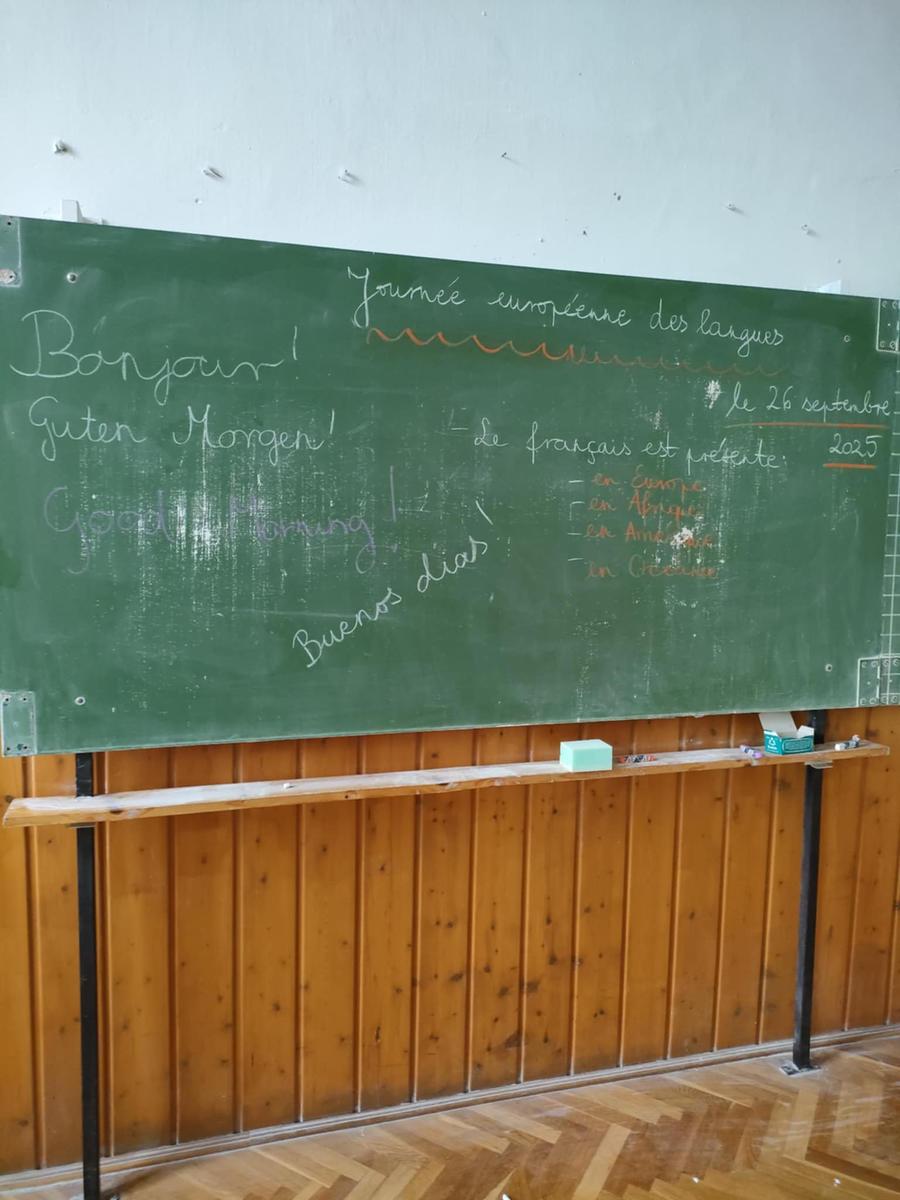 Journée européenne des langues
le 26 septembre
2025
Bonjour!
Guten Morgen!
Good Morning!
Buenos dias!
- Le français est présente:
- en Europe
- en Afrique
- en Amérique
- en Océanie